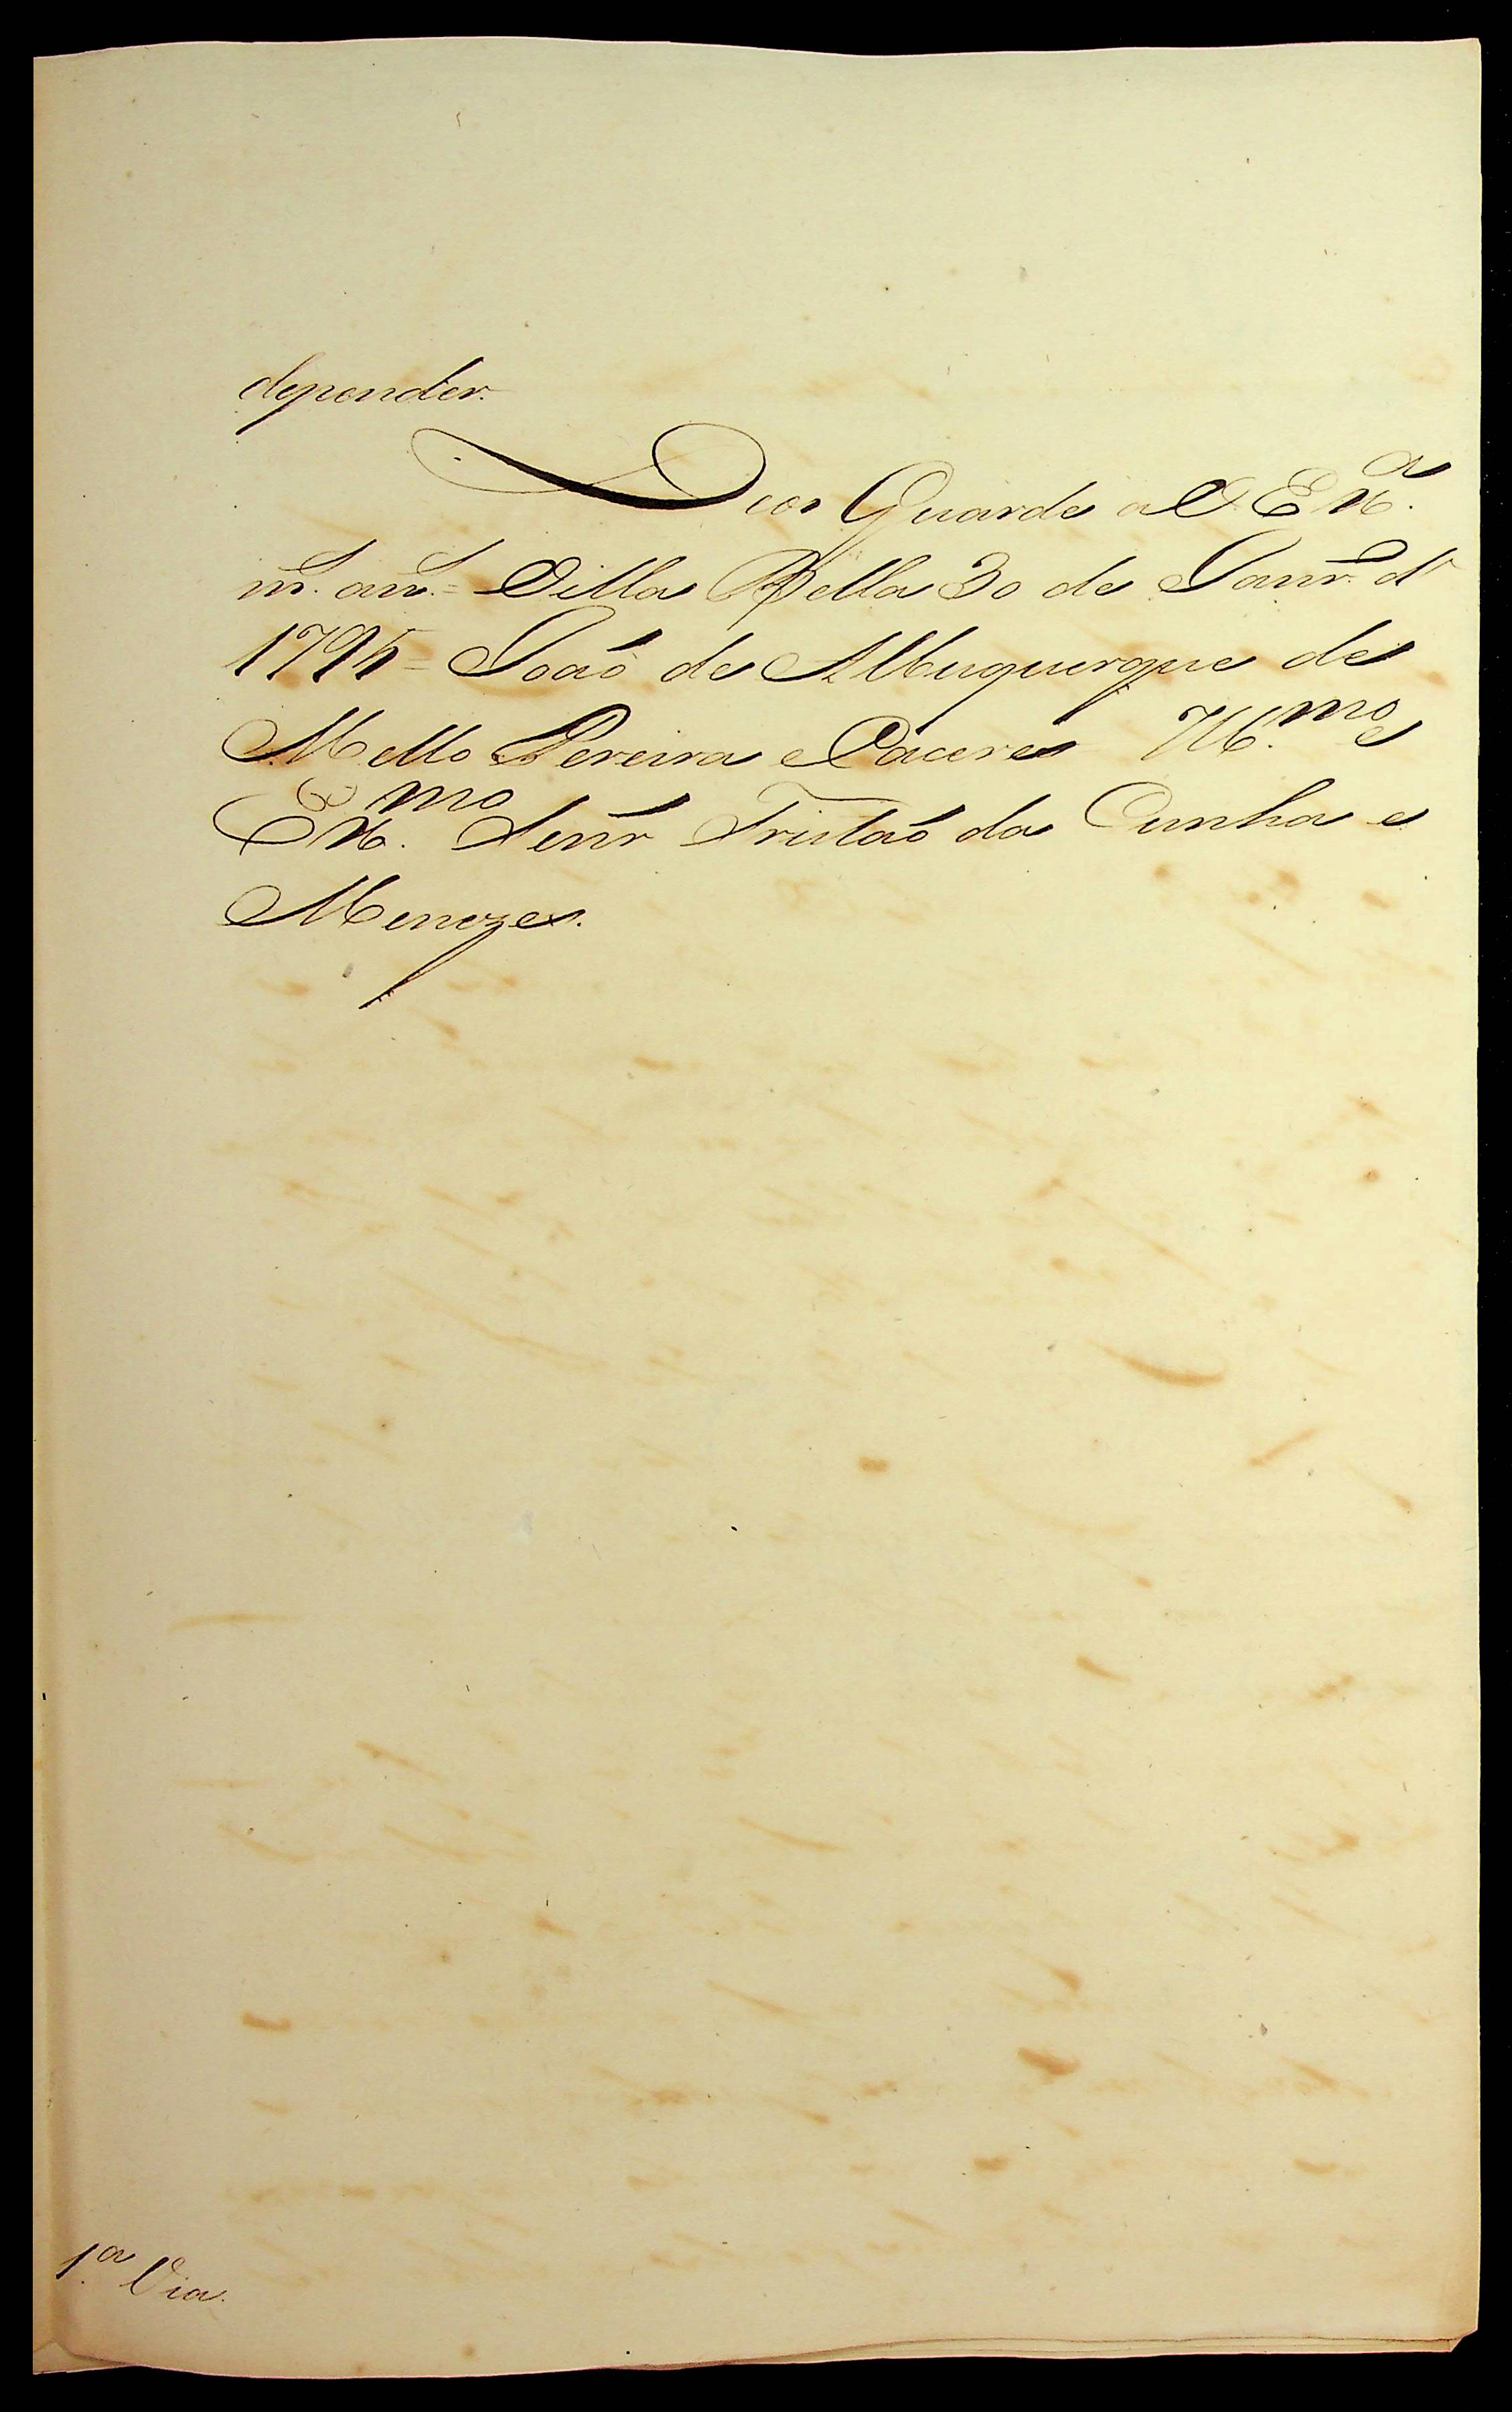 depender.
Deos Guarde a V Ex.ª
m.s an.s = Villa Bella 30 de Janr.o d'
1795 = João de Albuquerque de
Mello Pereira e Caceres Ill.mo e
Ex.mo Senr Tristaõ da Cunha e
Menezes.
1.ª Via.